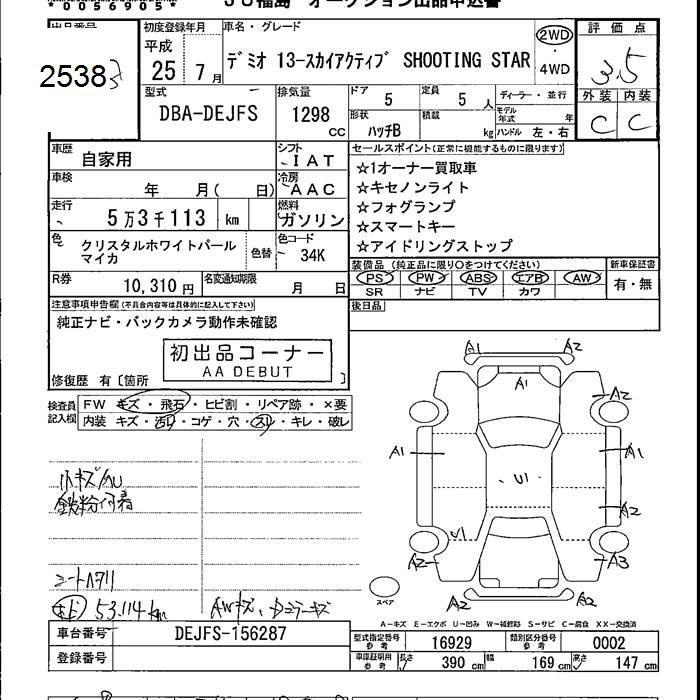 *0056905*
JU福島 オークション出品申込書
出品番号
2538
初度登録年月
平成
25 年 7 月
車名・グレード
デミオ 13-スカイアクティブ SHOOTING STAR
2WD
・
4WD
評価点
3.5
外装 内装
C C
型式
DBA-DEJFS
排気量
1298
CC
ドア
5
定員
5 人
ディーラー・並行
形状
ハッチB
積載
kg
モデル年式 年
ハンドル 左・右
車歴
自家用
シフト
IAT
車検
年 月( 日)
冷房
AAC
走行
5万3千113 km
燃料
ガソリン
色
クリスタルホワイトパール
マイカ
色替
色コード
34K
R券
10,310 円
名変通知期限
月 日
セールスポイント(正常に機能するものに限ります)
☆1オーナー買取車
☆キセノンライト
☆フォグランプ
☆スマートキー
☆アイドリングストップ
装備品(純正品に限り○をつけてください)
PS PW ABS エアB AW
SR ナビ TV カワ
新車保証書
有・無
後日品
注意事項申告欄(不具合内容等は具体的に記入して下さい)
純正ナビ・バックカメラ動作未確認
初出品コーナー
AA DEBUT
修復歴 有〔箇所 〕
検査員
記入欄
FW キズ・飛石・ヒビ割・リペア跡・×要
内装 キズ・汚レ・コゲ・穴・スレ・キレ・破レ
小キズ/AU
鉄粉付着
シートヘタリ
53,114km
AWキズ、
A1 A2
A1
A2
A1 A1
U1
A2
U1
A2 A3
A2 A2
スペア
A-キズ E-エクボ U-凹み W-補修跡 S-サビ C-腐食 XX-交換済
車台番号
DEJFS-156287
登録番号
型式指定番号
参考
16929
類別区分番号
参考
0002
車庫証明用
参考
長さ 390 cm 幅 169 cm 高さ 147 cm